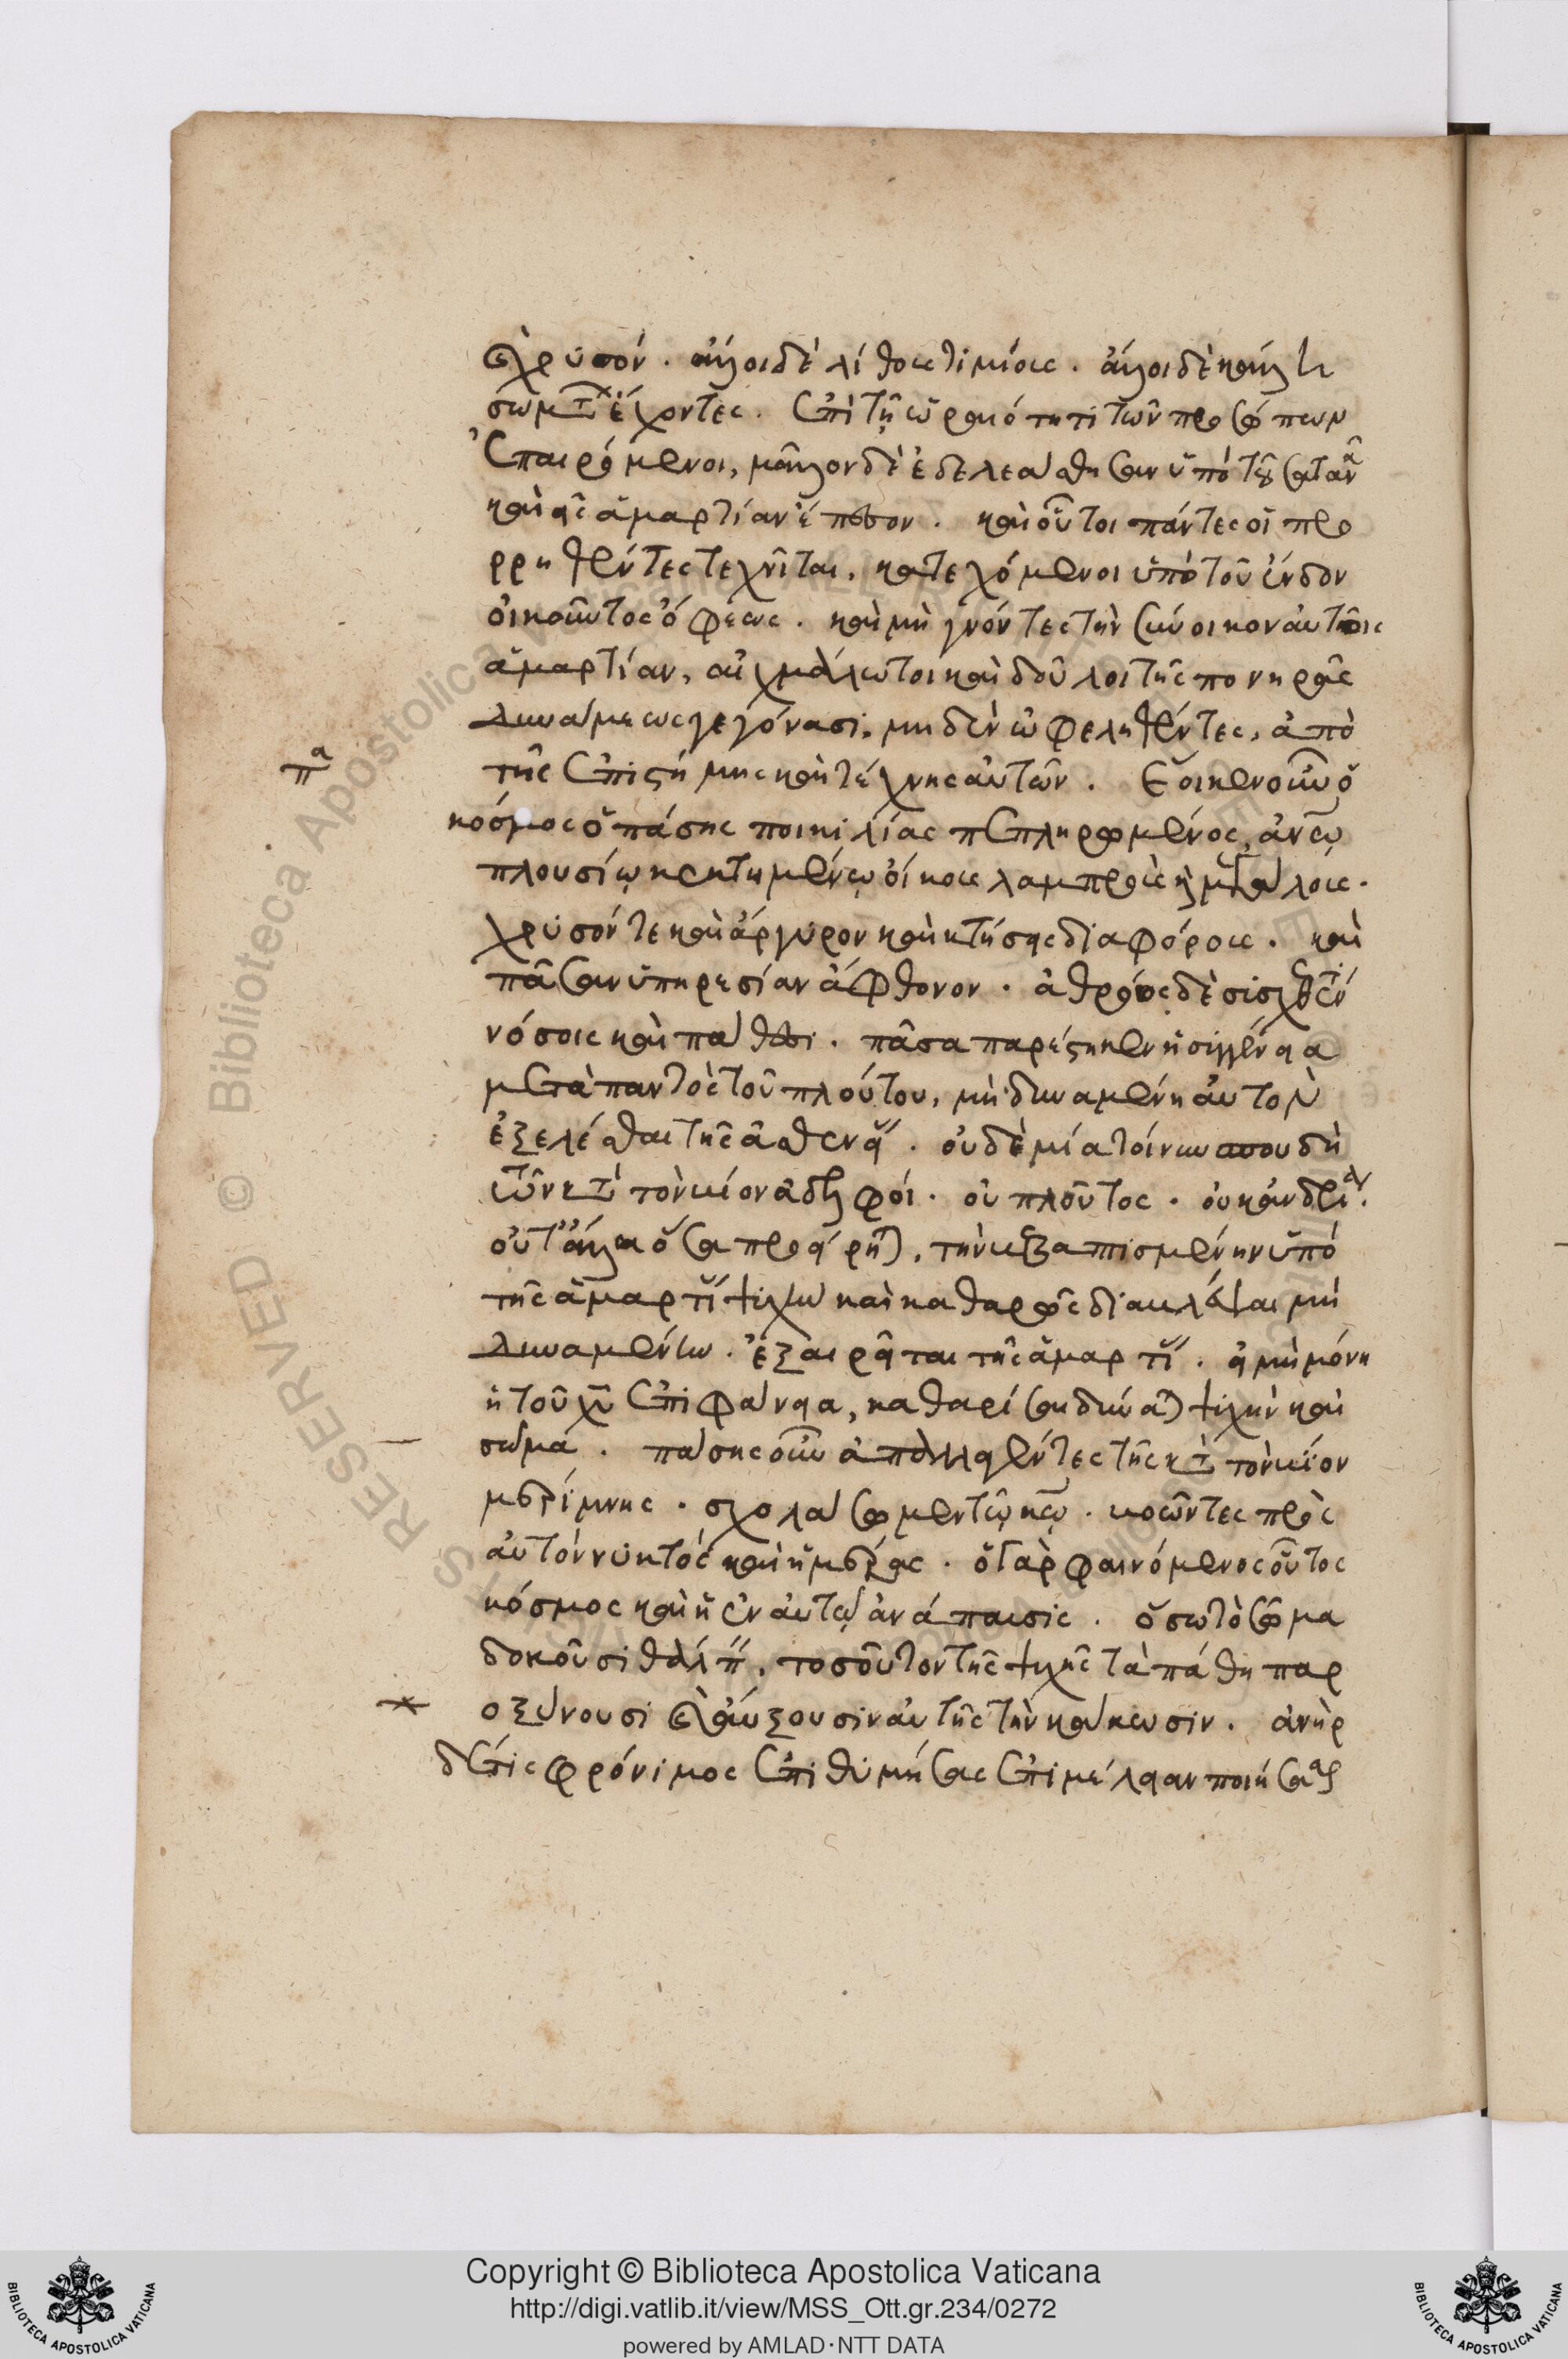 χρυσόν. ἄλλοι δὲ λίθοις τιμίοις. ἄλλοι δὲ κάλλει
σώματ ἔχοντες. ἐπὶ τῇ ὡραιότητι τῶν προσώπων
ἐπαιρόμενοι, μᾶλλον δὲ ἐδελεάσθησαν ὑπὸ τοῦ σατανᾶ
καὶ εἰς ἁμαρτίαν ἔπεσον. καὶ οὗτοι πάντες οἱ προ
ρρηθέντες τεχνῖται, κατεχόμενοι ὑπὸ τοῦ ἔνδον
οἰκοῦντος ὄφεως. καὶ μὴ γνόντες τὴν σύνοικον αὐτοῖς
ἁμαρτίαν, αἰχμάλωτοι καὶ δοῦλοι τῆς πονηρᾶς
δυνάμεως γεγόνασι, μηδὲν ὠφεληθέντες, ἀπὸ
πα τῆς ἐπιστήμης καὶ τέχνης αὐτῶν. Ἔοικεν οὖν ὁ
κόσμος ὁ πάσης ποικιλίας πεπληρωμένος, ἀνῳ
πλουσίῳ κεκτημένῳ οἴκοις λαμπροῖς κ μεγάλοις.
χρυσόν τε καὶ ἄργυρον καὶ κτήσεις διαφόροις. καὶ
πᾶσαν ὑπηρεσίαν ἄφθονον. ἀθρόως δὲ
νόσοις καὶ πάθεσι. πᾶσα παρέστηκεν ἡ συγγένεια
μετὰ παντὸς τοῦ πλούτου, μὴ δυναμένη αὐτὸν
ἐξελέσθαι τῆς ἀσθενεί. οὐδὲ μία τοίνυν σπουδὴ
τῶν κατὰ τὸν βίον ἀδελφοί. οὐ πλοῦτος. οὐκ ἀνδρί.
οὔτ' ἄλλα ὅσα προείρητ, τὴν βεβαπτισμένην ὑπὸ
τῆς ἁμαρτί ψυχὴν καὶ καθαρῶς διαβλέψαι μὴ
δυναμένην. ἐξαιρεῖται τῆς ἁμαρτί. εἰ μὴ μόνη
ἡ τοῦ χυ ἐπιφάνεια, καθαρίσαι δύνατ ψυχὴν καὶ
σῶμα. πάσης οὖν ἀπαλλαγέντες τῆς κατὰ τὸν βίον
μερίμνης. σχολάσωμεν τῷ κῳ. βοῶντες πρὸς
αὐτὸν νυκτὸς καὶ ἡμέρας. ὁ γὰρ φαινόμενος οὗτος
κόσμος καὶ ἡ ἐν αὐτῷ ἀνάπαυσις. ὅσω τὸ σῶμα
δοκοῦσι θάλπ, τοσοῦτον τῆς ψυχῆς τὰ πάθη παρ
οξύνουσι καὶ αὔξουσιν αὐτῆς τὴν κάκωσιν. ἀνὴρ
δέ τις φρόνιμος ἐπιθυμήσας ἐπιμέλειαν ποιήσας
Copyright © Biblioteca Apostolica Vaticana
http://digi.vatlib.it/view/MSS_Ott.gr.234/0272
powered by AMLAD·NTT DATA